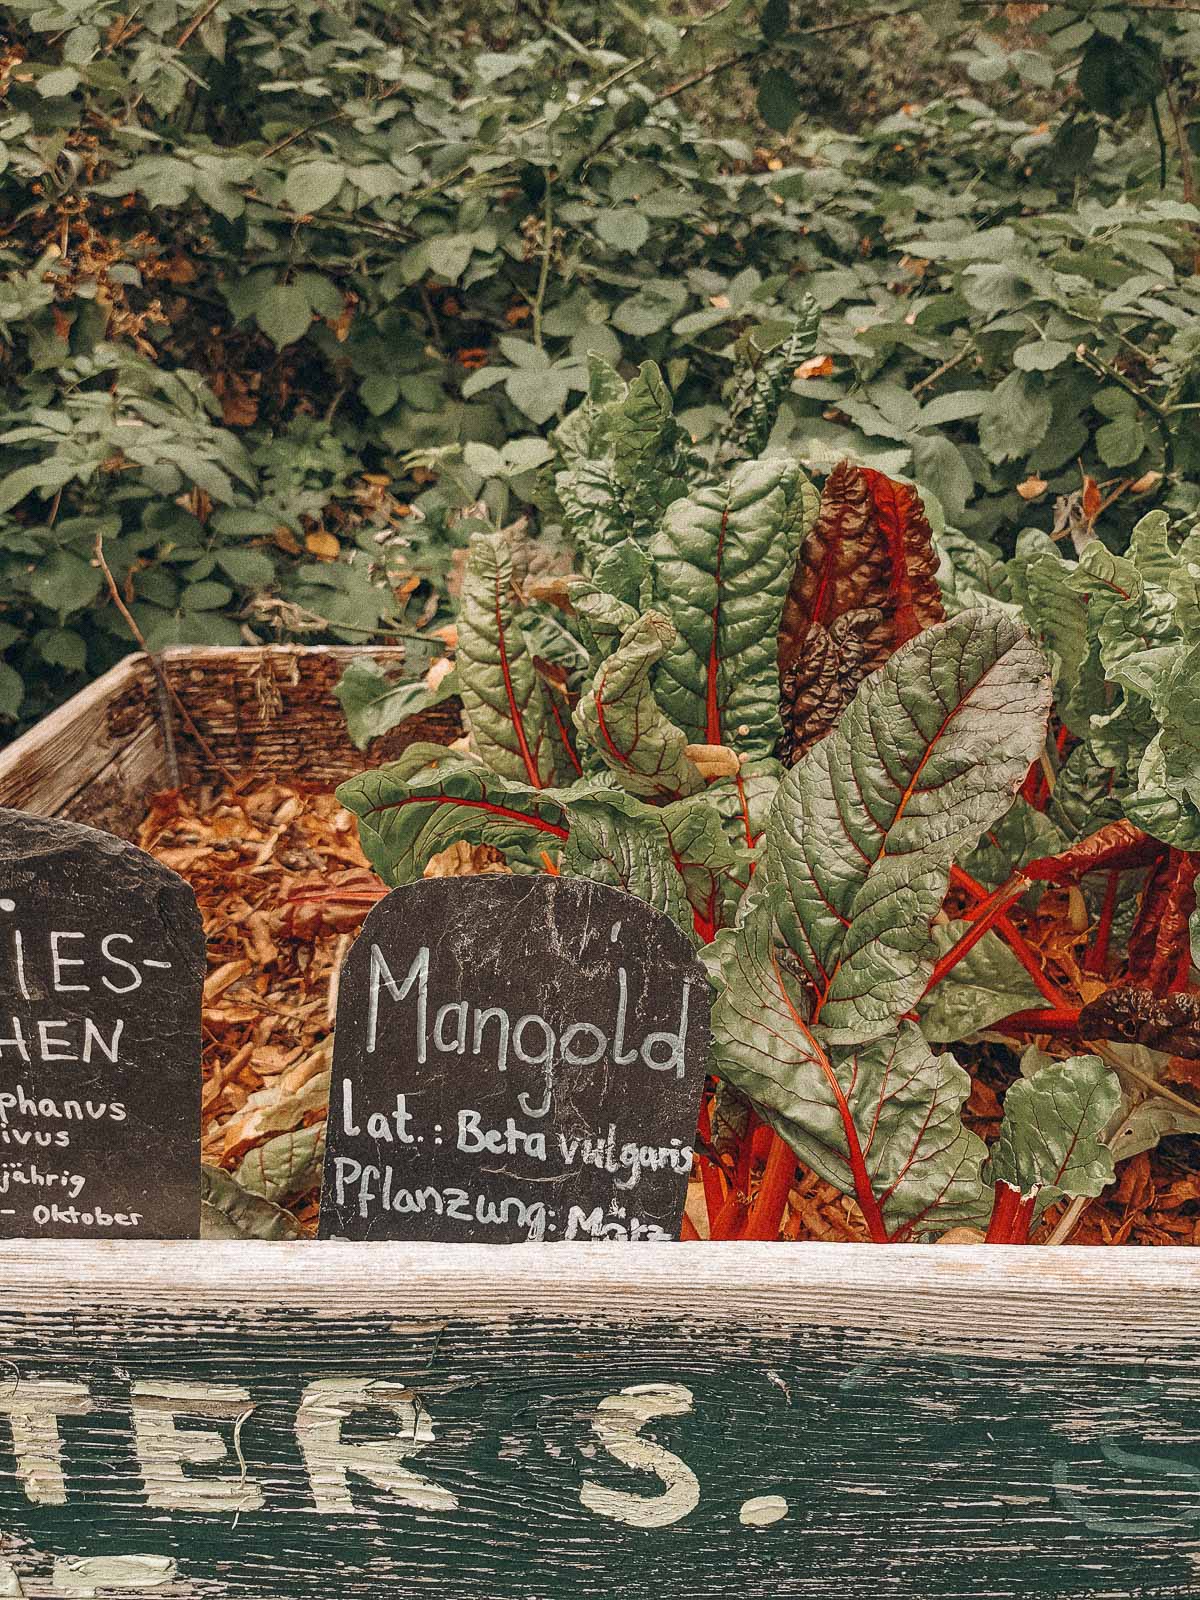 IES-
HEN
phanus
ivus
jährig
- Oktober
Mangold
lat.: Beta vulgaris
Pflanzung: März
TER S.